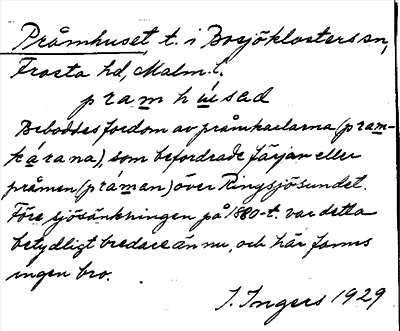 Pråmhuset, t. i Bosjöklosters sn,
Frosta hd, Malm. l.
pramhúsad
Beboddes fordom av pråmkarlarna (pram-
kárana), som befordrade färjan eller
pråmen (práman) över Ringsjösundet.
Före sjösänkningen på 1880-t. var detta
betydligt bredare än nu, och här fanns
ingen bro.
I. Ingers 1929